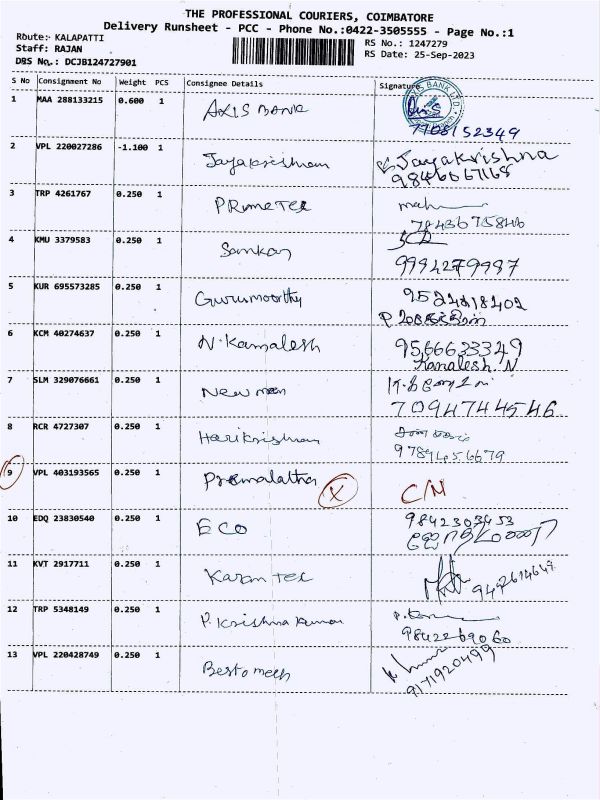 THE PROFESSIONAL COURIERS, COIMBATORE
Delivery Runsheet - PCC - Phone No.:0422-3505555 - Page No.:1
Route: KALAPATTI
RS No.: 1247279
Staff: RAJAN
RS Date: 25-Sep-2023
DRS No.: DCJB124727901
S No Consignment No Weight PCS Consignee Details Signature
1 MAA 288133215 0.600 1 AXIS BANK
7708152349
2 VPL 220027286 -1.100 1 Jayakrishnan Jayakrishna
9846667168
3 TRP 4261767 0.250 1 PRimeTec
4 KMU 3379583 0.250 1 Sankar
9994279987
5 KUR 695573285 0.250 1 Gurumoorthy
6 KCM 40274637 0.250 1 N. Kamalesh 9566633349
Kamalesh. N
7 SLM 329076661 0.250 1 New man
7094744546
8 RCR 4727307 0.250 1 Harikrishnan
9 VPL 403193565 0.250 1 Premalatha X C/N
10 EDQ 23830540 0.250 1 ECO 9842303453
11 KVT 2917711 0.250 1 Karan Tec
12 TRP 5348149 0.250 1 P. Krishna kumar
9842269060
13 VPL 220428749 0.250 1 Besto mech
9171920499